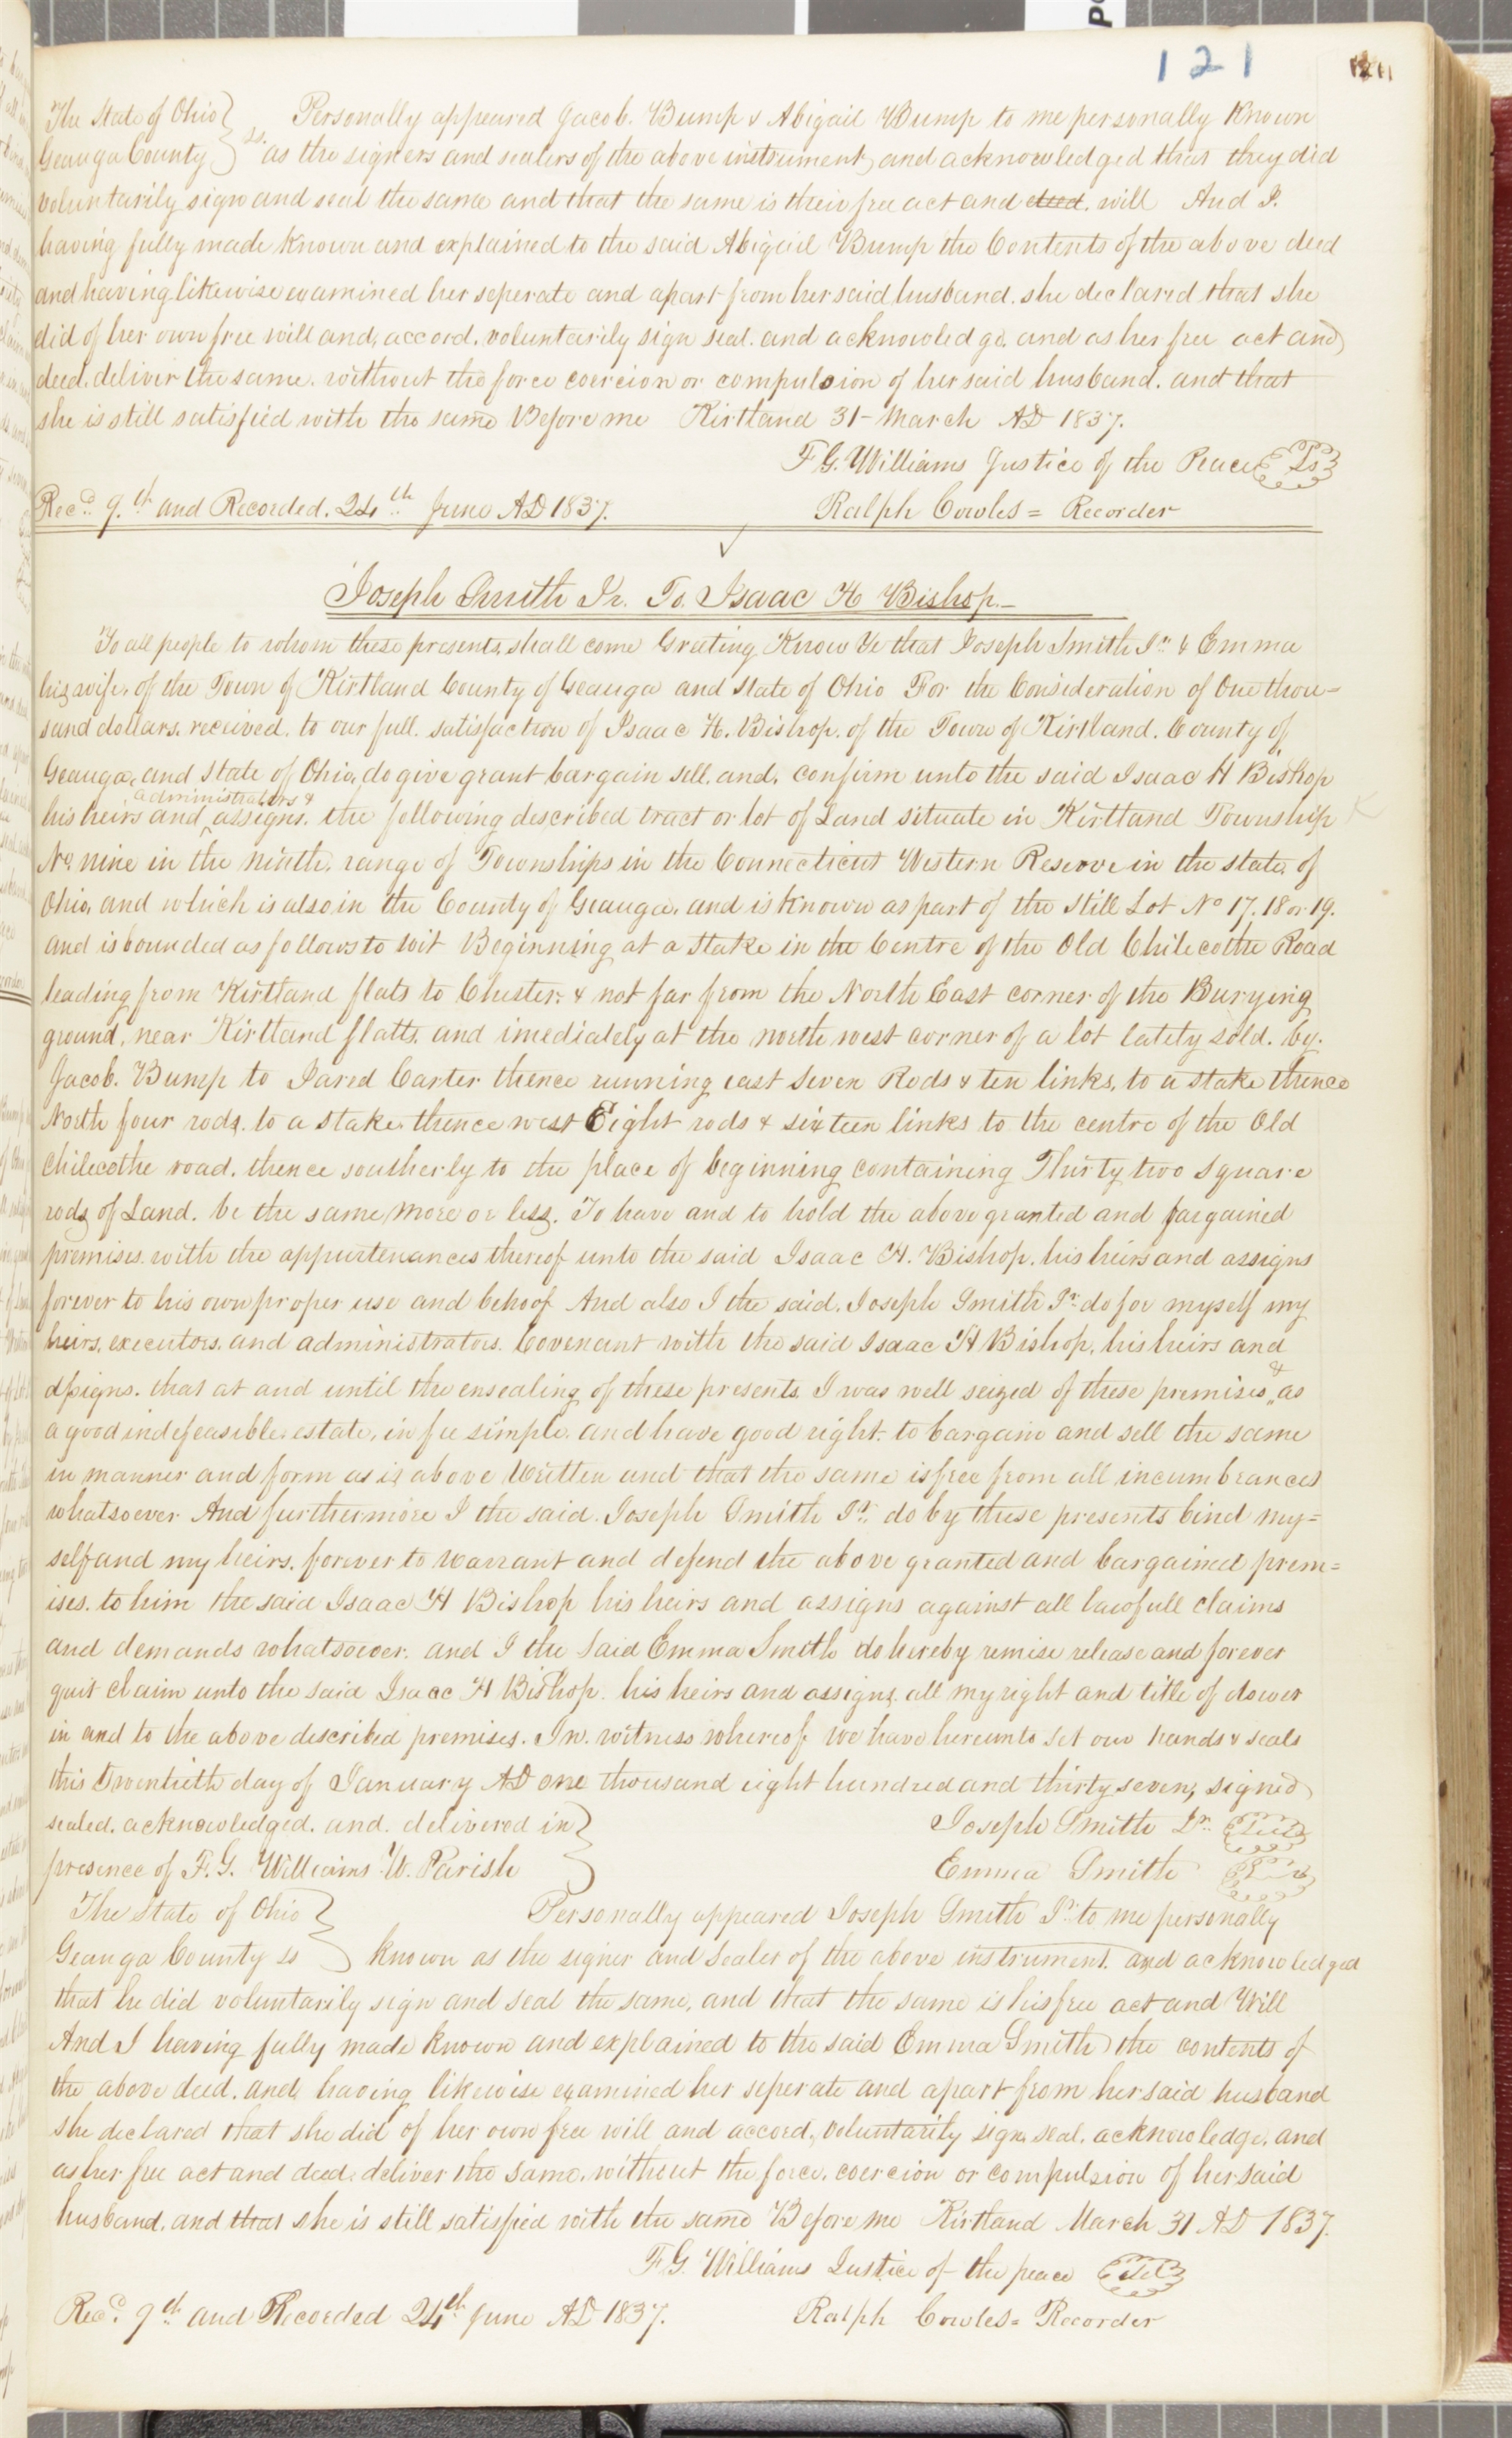 121
The State of Ohio } Personally appeared Jacob. Bump & Abigail Bump to me personally Known
Geauga County } ss. as the signers and sealers of the above instrument, and acknowledged that they did
voluntarily sign and seal the same and that the same is their free act and deed. will And I.
having fully made Known and explained to the said Abigail Bump the Contents of the above deed
and having likewise examined her seperate and apart from her said husband. she declared that she
did of her own free will and, accord. voluntarily sign seal. and acknowledge. and as her free act and
deed. deliver the same. without the force coercion or compulsion of her said husband. and that
she is still satisfied with the same Before me Kirtland 31 - March AD 1837.
F G. Williams Justice of the Peace Ls
Recd. 9.th and Recorded. 24th June AD 1837. Ralph Cowles = Recorder
Joseph Smith Jr. To. Isaac H Bishop.
To all people to whom these presents, shall come Greeting Know Ye that Joseph Smith Jr. & Emma
his wife, of the Town of Kirtland County of Geauga and State of Ohio For the Consideration of One thou=
sand dollars. received. to our full. satisfaction of Isaac H. Bishop. of the Town of Kirtland. County of
Geauga, and State of Ohio, do give grant bargain sell, and, confirm unto the said Isaac H Bishop
administrators &
his heirs and ^ assigns. the following described tract or lot of Land situate in Kirtland Township
No. nine in the ninth. range of Townships in the Connecticut Western Reserve in the state, of
Ohio, and which is also in the County of Geauga, and is known as part of the Still Lot No 17. 18 or 19.
and is bounded as follows to wit Beginning at a Stake in the Centre of the Old Chilecothe Road
leading from Kirtland flats to Chester. & not far from the North East corner of the Burying
ground, near Kirtland flatts, and imediately at the north west corner of a lot lately sold. by.
Jacob. Bump to Jared Carter thence running east Seven Rods & ten links, to a stake thence
North four rods. to a stake. thence west Eight rods & sixteen links to the centre of the Old
Chilecothe road. thence southerly to the place of beginning containing Thirty two Square
rods of Land. be the same more or less. To have and to hold the above granted and bargained
premises. with the appurtenances thereof unto the said Isaac H. Bishop. his heirs and assigns
forever to his own proper use and behoof And also I the said, Joseph Smith Jr. do for myself my
heirs, executors. and administrators. Covenant with the said Isaac H Bishop, his heirs and
assigns. that at and until the ensealing of these presents I was well seized of these premises, & as
a good indefeasible estate, in fee simple. and have good right. to bargain and sell the same
in manner and form as is above Written and that the same is free from all incumbrances
whatsoever And furthermore I the said. Joseph Smith Jr. do by these presents bind my=
self and my heirs. forever to Warrant and defend the above granted and bargained prem=
ises. to him the said Isaac H Bishop his heirs and assigns against all lawfull claims
and demands whatsoever. and I the Said Emma Smith do hereby remise release and forever
quit claim unto the said Isaac H Bishop. his heirs and assigns all my right and title of dower
in and to the above described premises. In. witness whereof we have hereunto set our hands & seals
this twentieth day of January AD one thousand eight hundred and thirty seven, signed
sealed. acknowledged. and. delivered in } Joseph Smith Jr.
presence of F. G. Williams W. Parish } Emma Smith
The State of Ohio } Personally appeared Joseph Smith Jr. to me personally
Geauga County ss } known as the signer and Sealer of the above instrument. and acknowledged
that he did voluntarily sign and seal the same, and that the same is his free act and Will
And I having fully made known and explained to the said Emma Smith the contents of
the above deed. and, having likewise examined her seperate and apart from her said husband
she declared that she did of her own free will and accord, voluntarily sign, seal, acknowledge, and
as her free act and deed. deliver the same, without the force, coercion or compulsion of her said
husband, and that she is still satisfied with the same Before me Kirtland March 31 AD 1837.
F. G. Williams Justice of the peace
Recd. 9th and Recorded 24th June AD 1837. Ralph Cowles = Recorder